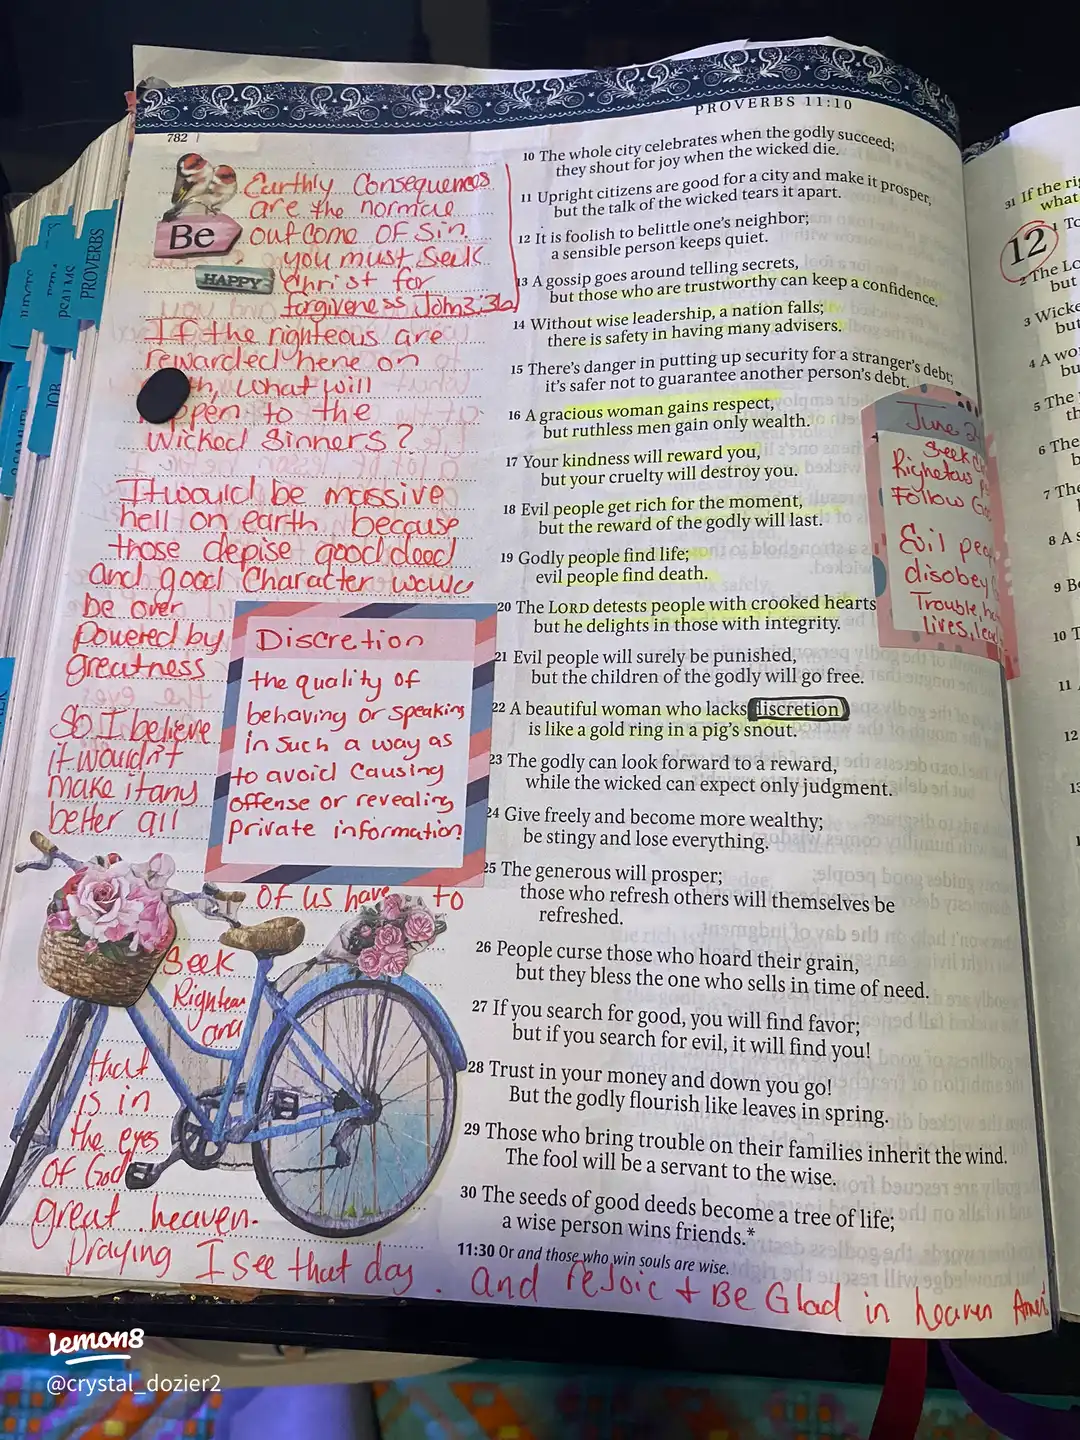 PROVERBS 11:10
782
Earthly Consequences
are the normal
Be
outcome OF Sin.
you must Seek
HAPPY
Christ for
forgiveness John3:36
If the righteous are
rewarded here on
what will
to the
Wicked Sinners?
It would be massive
hell on earth because
those depise good deed
and good Character would
be over
powered by
greatness
So I believe
it wouldn't
make it any
better all
Discretion
the quality of
behaving or speaking
in such a way as
to avoid causing
offense or revealing
private information.
of us have to
Seek
that
is in
the eyes
of God
great heaven.
Praying I see that day. and rejoic + Be Glad in heaven Amen
10 The whole city celebrates when the godly succeed;
they shout for joy when the wicked die.
11 Upright citizens are good for a city and make it prosper,
but the talk of the wicked tears it apart.
12 It is foolish to belittle one's neighbor;
a sensible person keeps quiet.
13 A gossip goes around telling secrets,
but those who are trustworthy can keep a confidence.
14 Without wise leadership, a nation falls;
there is safety in having many advisers.
15 There's danger in putting up security for a stranger's debt;
it's safer not to guarantee another person's debt.
16 A gracious woman gains respect,
but ruthless men gain only wealth.
17 Your kindness will reward you,
but your cruelty will destroy you.
18 Evil people get rich for the moment,
but the reward of the godly will last.
19 Godly people find life;
evil people find death.
20 The LORD detests people with crooked hearts
but he delights in those with integrity.
21 Evil people will surely be punished,
but the children of the godly will go free.
22 A beautiful woman who lacks discretion
is like a gold ring in a pig's snout.
23 The godly can look forward to a reward,
while the wicked can expect only judgment.
24 Give freely and become more wealthy;
be stingy and lose everything.
25 The generous will prosper;
those who refresh others will themselves be
refreshed.
26 People curse those who hoard their grain,
but they bless the one who sells in time of need.
27 If you search for good, you will find favor;
but if you search for evil, it will find you!
28 Trust in your money and down you go!
But the godly flourish like leaves in spring.
29 Those who bring trouble on their families inherit the wind.
The fool will be a servant to the wise.
30 The seeds of good deeds become a tree of life;
a wise person wins friends.*
11:30 Or and those who win souls are wise.
June
Seek
Follow
Evil
disobey
Trouble,
lives,
31 If the
what
12
2 The
but
3
but
4 A
5 The
6 The
7 The
8 A
9
10
11
12
PROVERBS
PSALMS
JOB
Lemon8
@crystal_dozier2